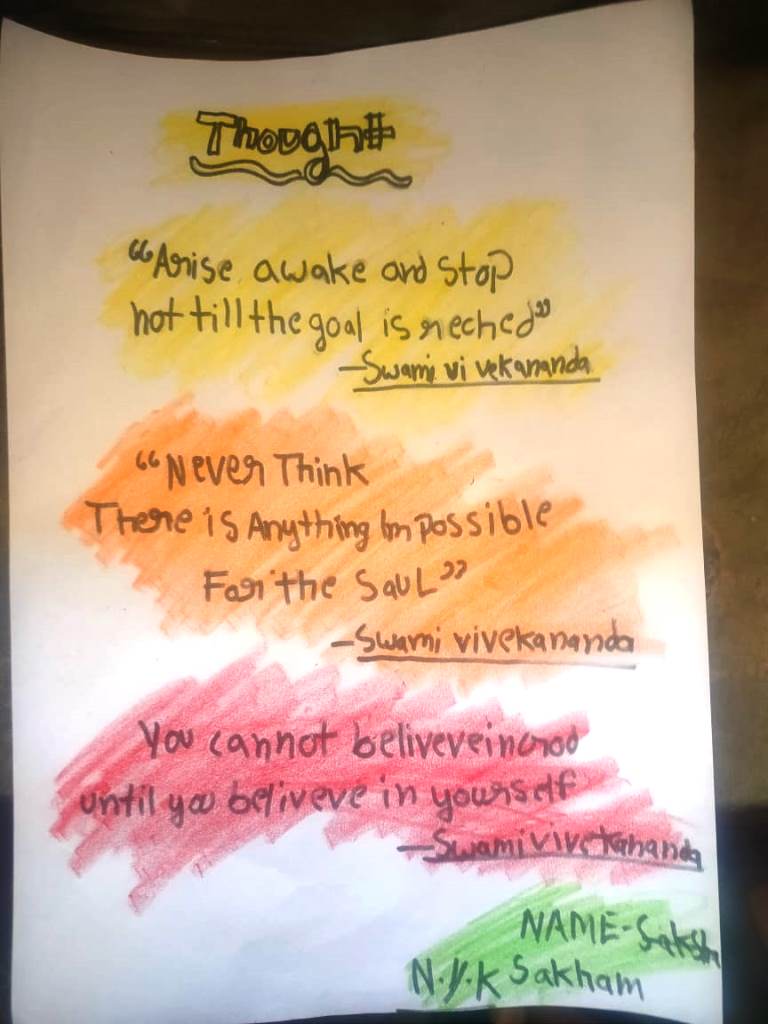 Thought
“Arise awake and stop
not till the goal is reched”
-Swami vi vekananda
“Never Think
There is Anything Impossible
For the Saul”
-Swami vivekananda
You cannot beliveve in God
until you beliveve in yourself
-Swami vivekananda
NAME-
N.Y.K Sakham